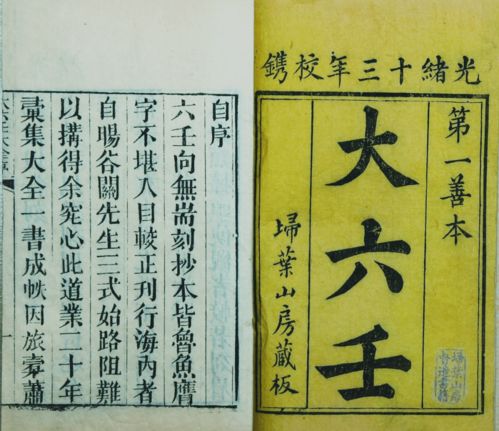 光緒十三年校鐫
第一善本
大六壬
埽葉山房藏板
埽葉山房
督造書籍
自序
六壬向無耑刻抄本皆魯魚贋
字不堪入目較正刊行海內者
自暘谷關先生三式始路阻難
以搆得余究心此道業二十年
彙集大全一書成帙因旅橐蕭